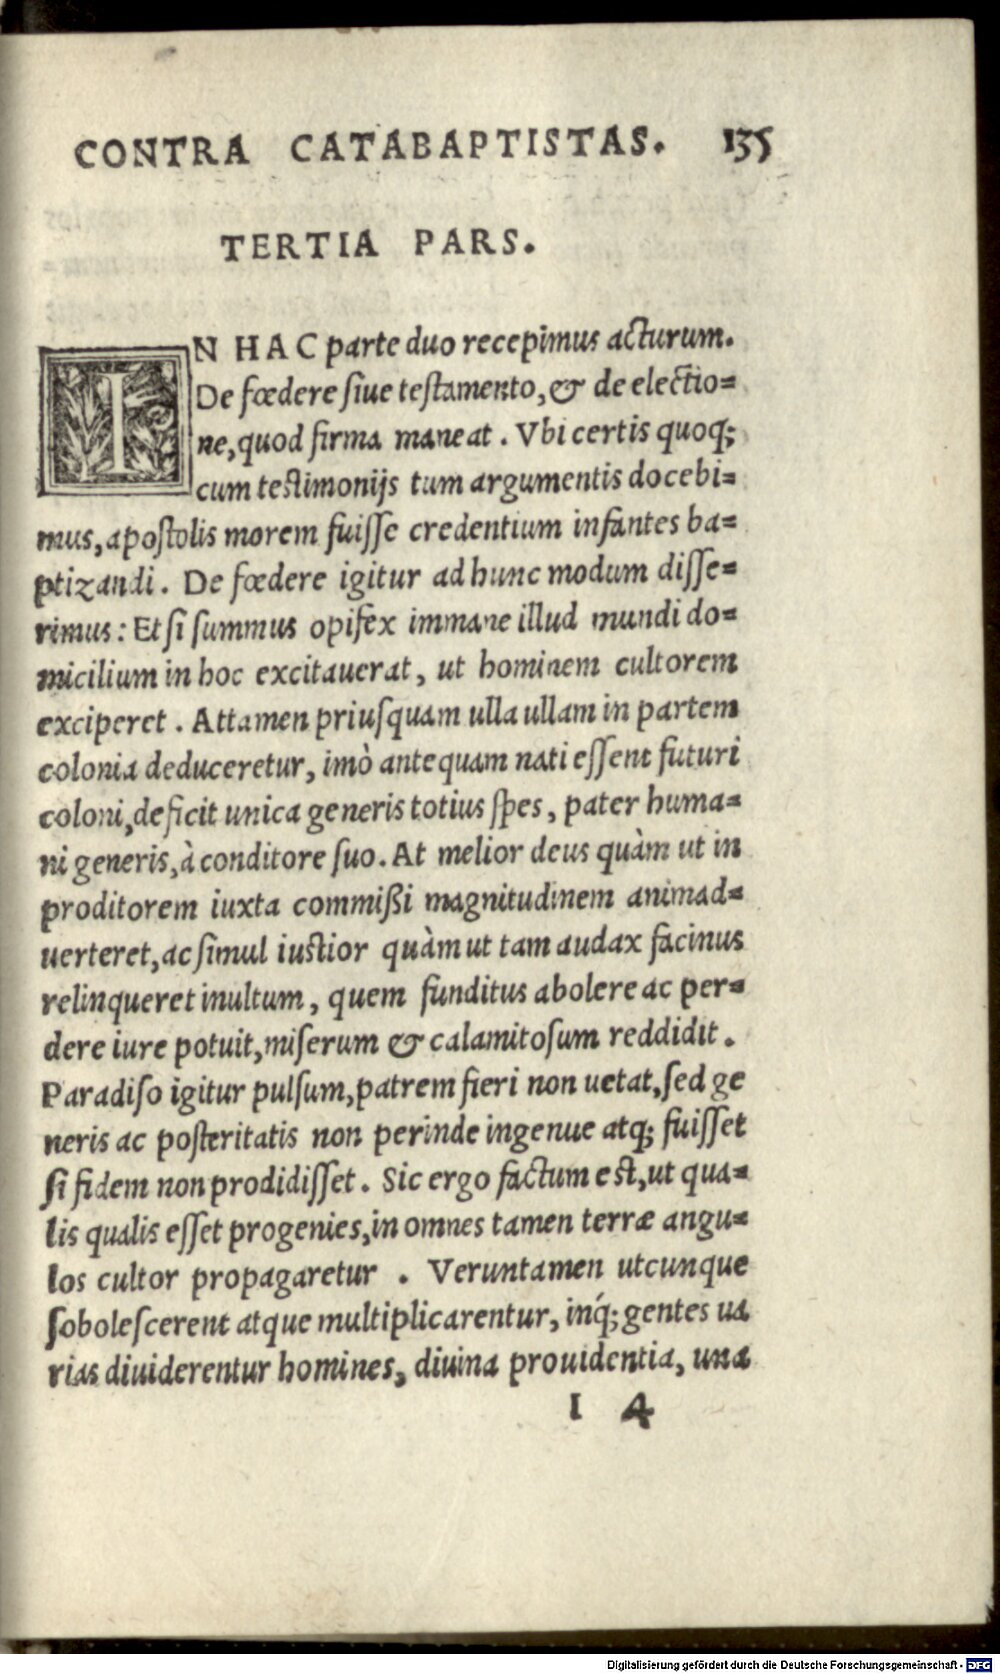 CONTRA CATABAPTISTAS. 135
TERTIA PARS.
IN HAC parte duo recepimus acturum.
De fœdere ſiue teſtamento, & de electio=
ne, quod firma maneat. Vbi certis quoq;
cum teſtimonijs tum argumentis docebi=
mus, apoſtolis morem fuiſſe credentium infantes ba=
ptizandi. De fœdere igitur ad hunc modum diſſe=
rimus: Et ſi ſummus opifex immane illud mundi do=
micilium in hoc excitauerat, ut hominem cultorem
exciperet. Attamen priuſquam ulla ullam in partem
colonia deduceretur, imò antequam nati eſſent futuri
coloni, deficit unica generis totius ſpes, pater huma=
ni generis, à conditore ſuo. At melior deus quàm ut in
proditorem iuxta commißi magnitudinem animad=
uerteret, ac ſimul iustior quàm ut tam audax facinus
relinqueret inultum, quem funditus abolere ac per=
dere iure potuit, miſerum & calamitoſum reddidit.
Paradiſo igitur pulſum, patrem fieri non uetat, ſed ge
neris ac poſteritatis non perinde ingenue atq; fuiſſet
ſi fidem non prodidiſſet. Sic ergo factum est, ut qua=
lis qualis eſſet progenies, in omnes tamen terræ angu=
los cultor propagaretur. Veruntamen utcunque
ſoboleſcerent atque multiplicarentur, inq́; gentes ua
rias diuiderentur homines, diuina prouidentia, una
I 4
Digitalisierung gefördert durch die Deutsche Forschungsgemeinschaft - DFG